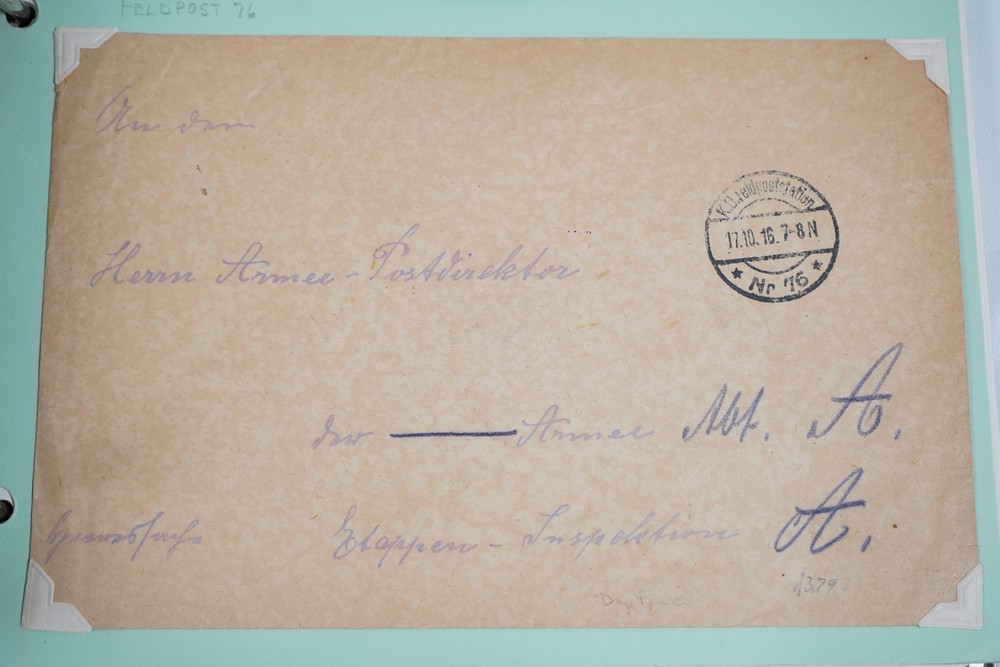 FELDPOST 76
An den
K.D. Feldpoststation
17.10.16.7-8N
Nr 76
Herrn Armee-Postdirektor
der Armee Abt. A.
Heeressache
Etappen-Inspektion A.
1379